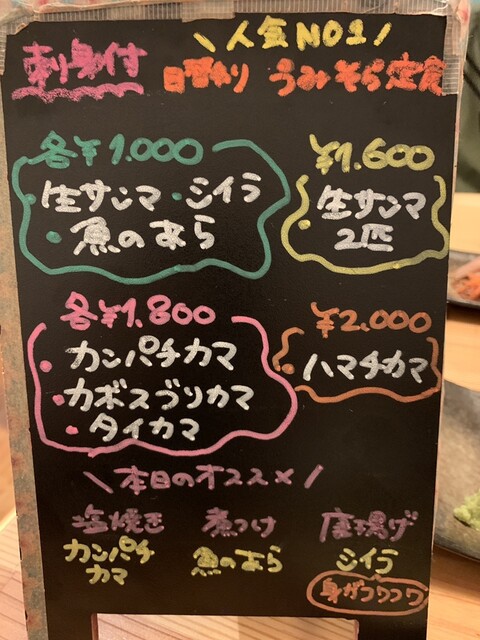 \人気NO1/
刺身付 日替わり うみそら定食
各¥1.000
・生サンマ ・シイラ
・魚のあら
¥1.600
・生サンマ
2匹
各¥1.800
・カンパチカマ
・カボスブリカマ
・タイカマ
¥2.000
・ハマチカマ
\本日のオススメ/
塩焼き 煮つけ 唐揚げ
カンパチ
カマ
魚のあら
シイラ
身がフワフワ